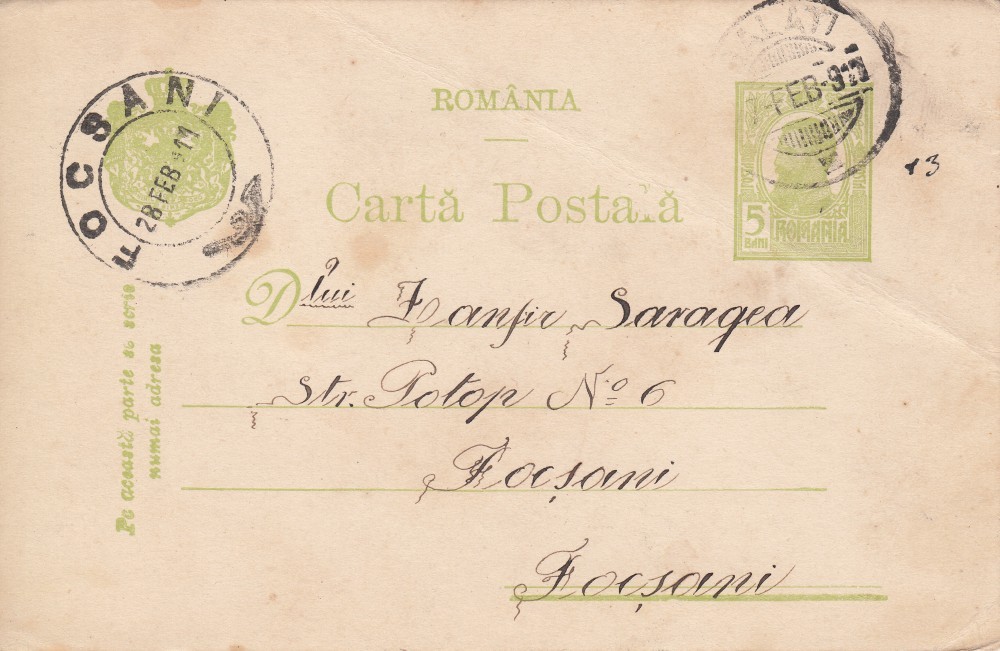 FOCSANI
28 FEB 911
ALATI
FEB 911
ROMÂNIA
Cartă Postală
5
BANI
ROMANIA
13
Dlui Zanfir Saragea
Str. Potop No 6
Focșani
Focșani
Pe această parte se scrie
numai adresa